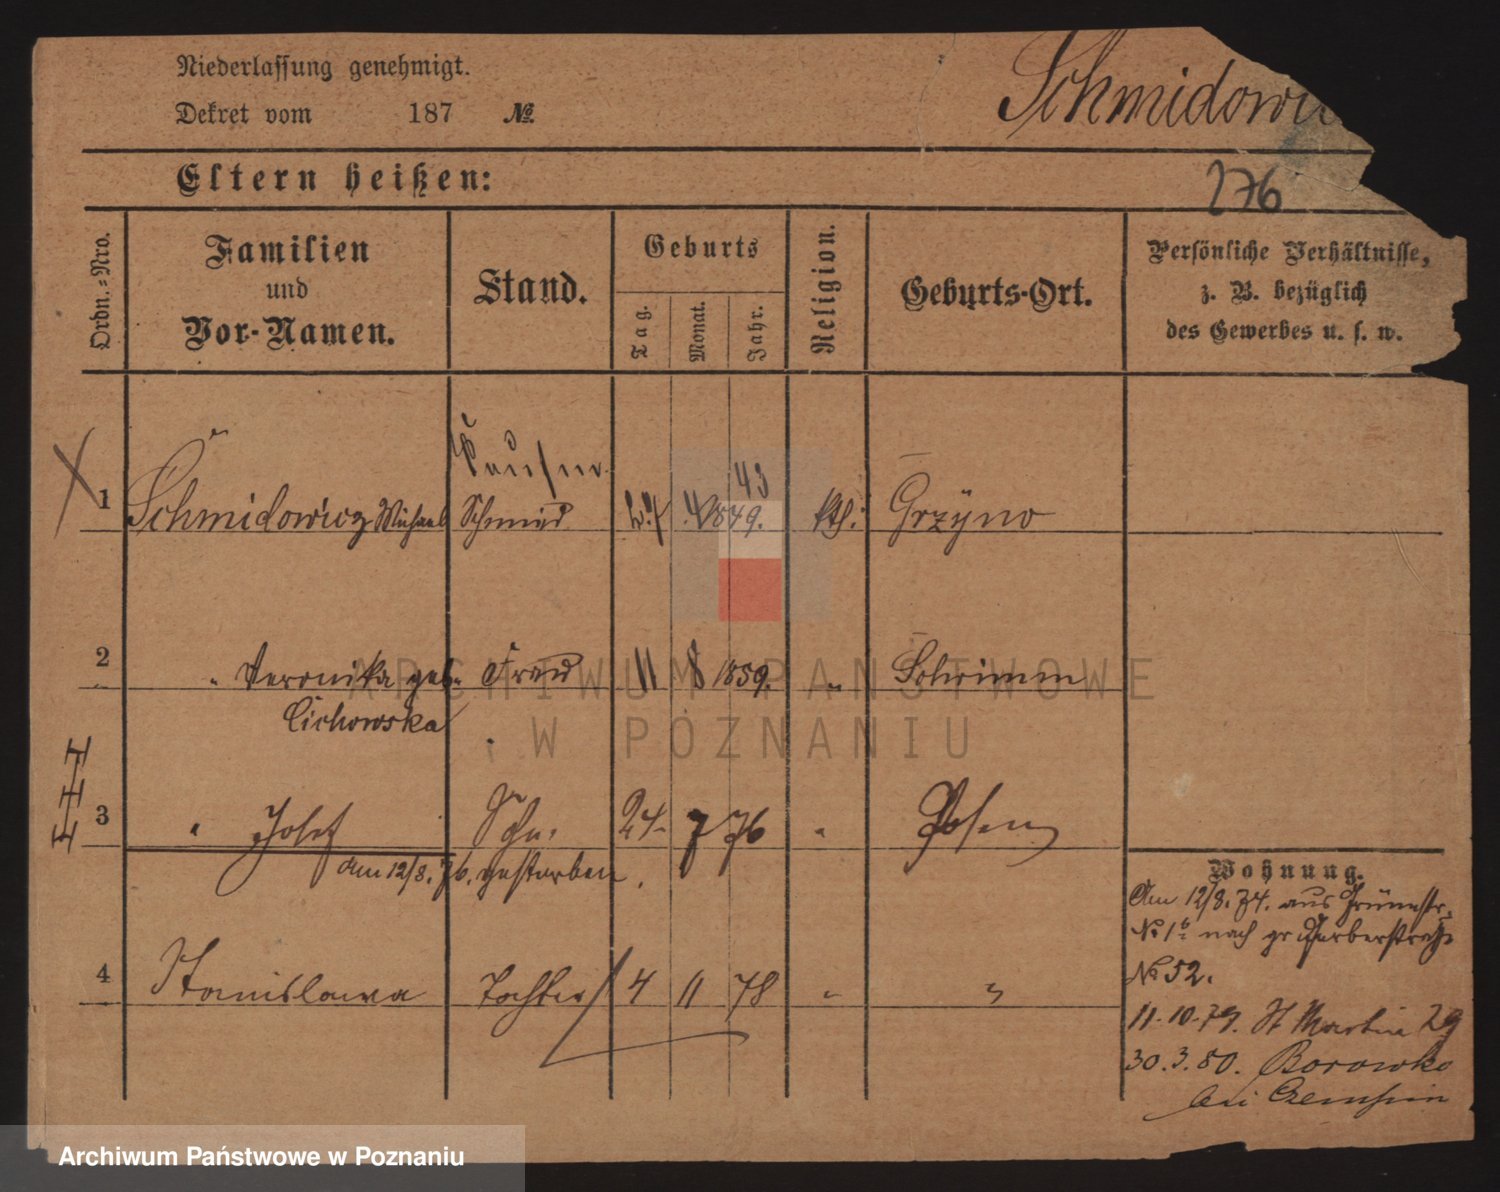 Niederlassung genehmigt.
Dekret vom 187 №
Schmidowi
276
Eltern heißen:
Ordn.-Nro.
Familien
und
Vor-Namen.
Stand.
Geburts
Tag.
Monat.
Jahr.
Religion.
Geburts-Ort.
Persönliche Verhältnisse,
z. B. bezüglich
des Gewerbes u. s. w.
43
1 Schmidowicz Michael Schmied 1849. kth. Grzyno
2 " Veronika geb. Frau 11 8 1859. " Schrimm
Cichowska
3 " Josef Sohn 24 7 76 " Posen
am 12/8. 76. gestorben.
4 Stanislawa Tochter 4 11 78 " "
Wohnung.
Am 12/8. 74. aus Grünestr.
№ 1b nach gr Gerberstraße
№ 52.
11.10.79. St Martin 29
30.3.80. Borowko
bei Czempin
ARCHIWUM PAŃSTWOWE
W POZNANIU
Archiwum Państwowe w Poznaniu